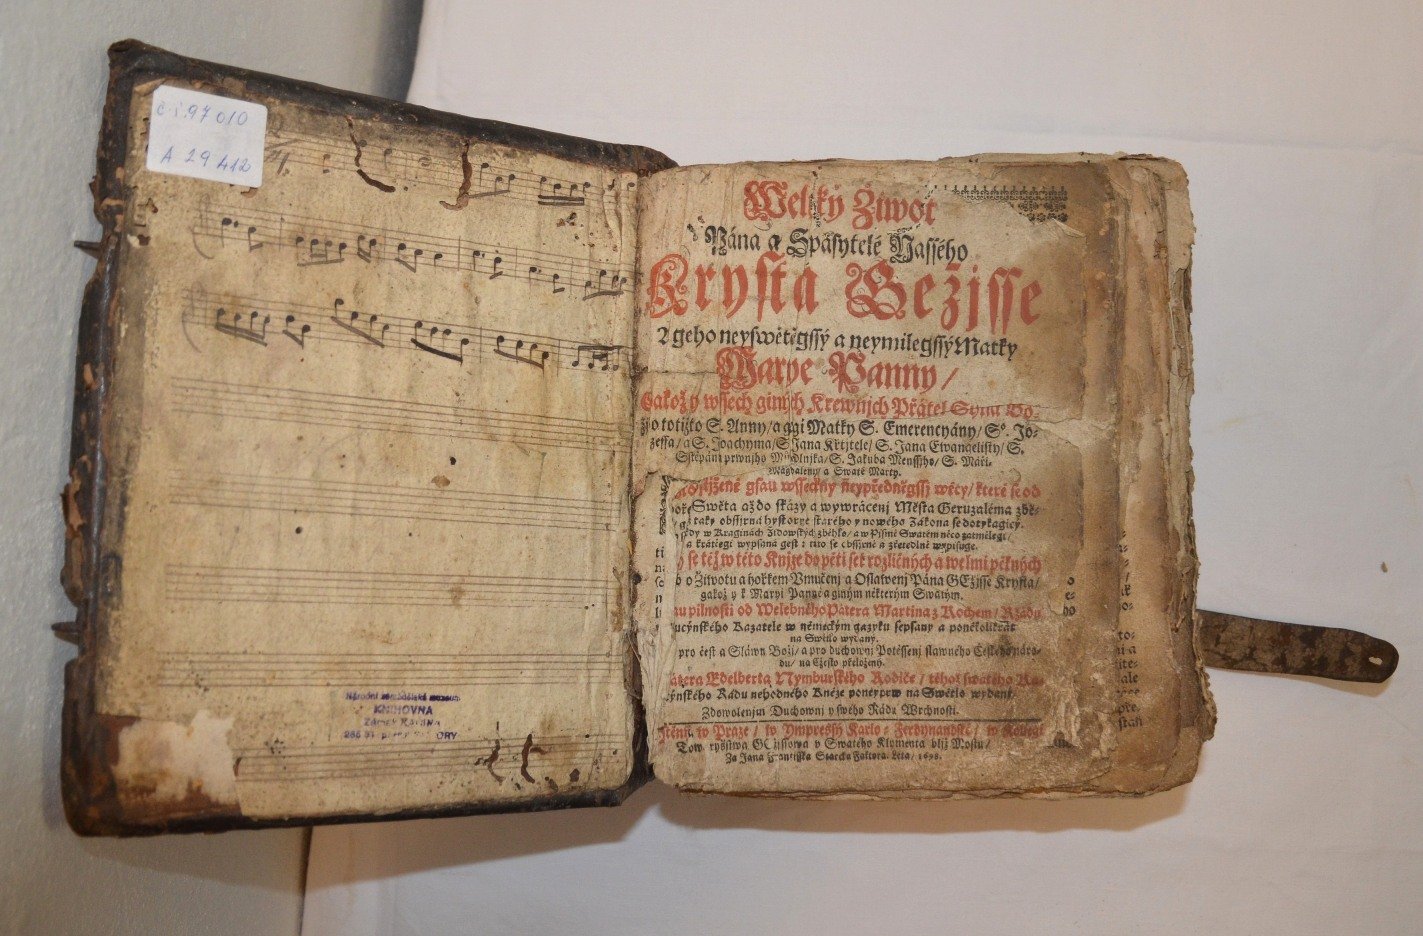 č.i. 97 010
A 29 412
Národní zemědělské muzeum
KNIHOVNA
Zámek Kačina
Welký Žiwot
Pána a Spasytele Nassého
Krysta Gežjsse
A geho neyswětěgssý a neymilegssý Matky
Marye Panny/
Gakož y wssech giných Krewnjch Přátel Syna Bo-
totižto S. Anny/ a gegj Matky S. Emerencyány/ S°. Jo-
zeffa/ a S. Joachyma/ S. Jana Křtjtele/ S. Jana Ewangelisty/ S.
Sstěpána prwnjho S. Jakuba Menssjho/ S. Máří-
Magdaleny/ a Swaté Marty.
gsau wsseckny neypředněgssj wěcy/ které se od
Swěta až do zkázy a wywrácenj Města Geruzaléma zbě-
taky obssyrna hystorye starého y nowého Zákona se dotykagjcý.
w Kraginách Židowských zběhlo/ a w Pjsmě Swatém něco zatmělegi/
a krátčegi wypsaná gest: tuto se obssyrně a zřetedlně wypisuge.
se též w této Knjze do pěti set rozličných a welmi pěkných
o Žiwotu a hořkém Vmučenj a Oslawenj Pána GEžjsse Krysta/
gakož y k Maryi Panně a giným některým Swatým.
pilnosti od Welebného Pátera Martina z Kochem/ Ržádu
Kazatele w německým gazyku sepsaný a poněkolikrát
na Swětlo wydaný.
pro čest a Sláwu Božj/ a pro duchownj Potěssenj slawného Českého náro-
du/ na Česko přeložený.
Edelberta Nymburského Rodiče/ téhož swatého Ka-
cýnského Rádu nehodného Kněze ponayprw na Swětlo wydaný.
Z dowolenjm Duchownj y swého Rádu Wrchnosti.
w Praze/ w Ympressý Karlo-Ferdynandské/ w Kollegi
Tow. rysstwa GEžjssowa v Swatého Klymenta bljž Mostu/
Za Jana Frantisska Starcka Faktora. Léta/ 1698.